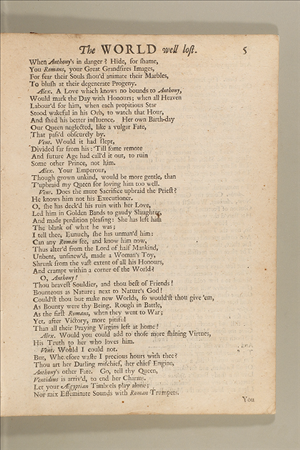 The WORLD well lost. 5
When Anthony's in danger? Hide, for shame,
You Romans, your Great Grandsires Images,
For fear their Souls shou'd animate their Marbles,
To blush at their degenerate Progeny.
Alex. A Love which knows no bounds to Anthony,
Would mark the Day with Honours; when all Heaven
Labour'd for him, when each propitious Star
Stood wakeful in his Orb, to watch that Hour,
And shed his better influence. Her own Birth-day
Our Queen neglected, like a vulgar Fate,
That pass'd obscurely by.
Vent. Would it had slept,
Divided far from his; 'Till some remote
And future Age had call'd it out, to ruin
Some other Prince, not him.
Alex. Your Emperour,
Though grown unkind, would be more gentle, than
T'upbraid my Queen for loving him too well.
Vent. Does the mute Sacrifice upbraid the Priest?
He knows him not his Executioner.
O, she has deck'd his ruin with her Love,
Led him in Golden Bands to gaudy Slaughter,
And made perdition pleasing: She has left him
The blank of what he was;
I tell thee, Eunuch, she has unman'd him:
Can any Roman see, and know him now,
Thus alter'd from the Lord of half Mankind,
Unbent, unsinew'd, made a Woman's Toy,
Shrunk from the vast extent of all his Honours,
And crampt within a corner of the World?
O, Anthony!
Thou bravest Souldier, and thou best of Friends!
Bounteous as Nature; next to Nature's God!
Could'st thou but make new Worlds, so would'st thou give 'em,
As Bounty were thy Being. Rough in Battle,
As the first Romans, when they went to War;
Yet, after Victory, more pitiful
Than all their Praying Virgins left at home!
Alex. Would you could add to those more shining Virtues,
His Truth to her who loves him.
Vent. Would I could not.
But, Wherefore waste I precious hours with thee?
Thou art her Darling mischief, her chief Engine,
Anthony's other Fate. Go, tell thy Queen,
Ventidius is arriv'd, to end her Charms.
Let your Ægyptian Timbrels play alone;
Nor mix Effeminate Sounds with Roman Trumpets.
You